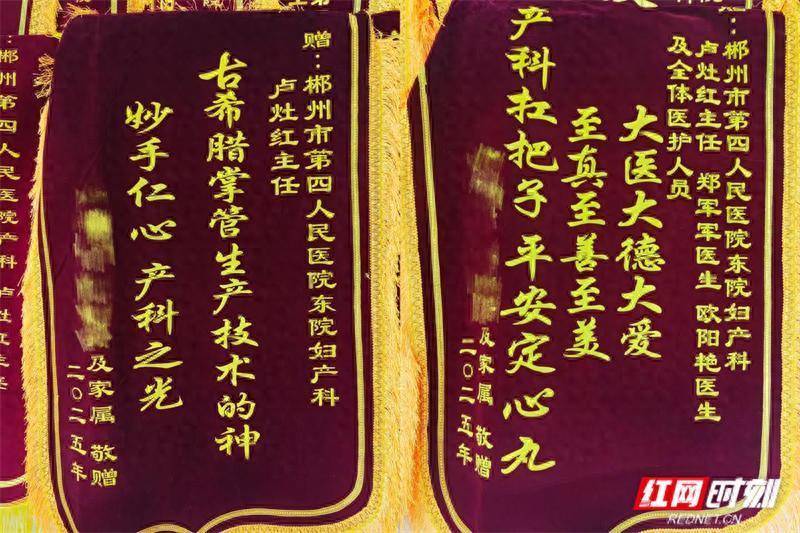 赠：郴州市第四人民医院东院妇产科
卢灶红主任
古希腊掌管生产技术的神
妙手仁心 产科之光
及家属 敬赠
二〇二五年
郴州市第四人民医院东院妇产科
卢灶红主任 郑军军医生 欧阳艳医生
及全体医护人员
大医大德大爱
至真至善至美
产科扛把子 平安定心丸
及家属 敬赠
二〇二五年
：郴州第四人民医院产科 卢灶红主任
红网时刻
REDNET.CN